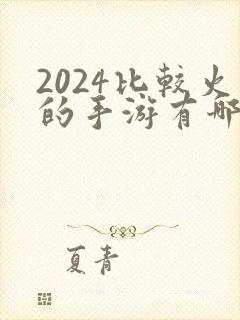 2024比較火
的手游有哪
夏青